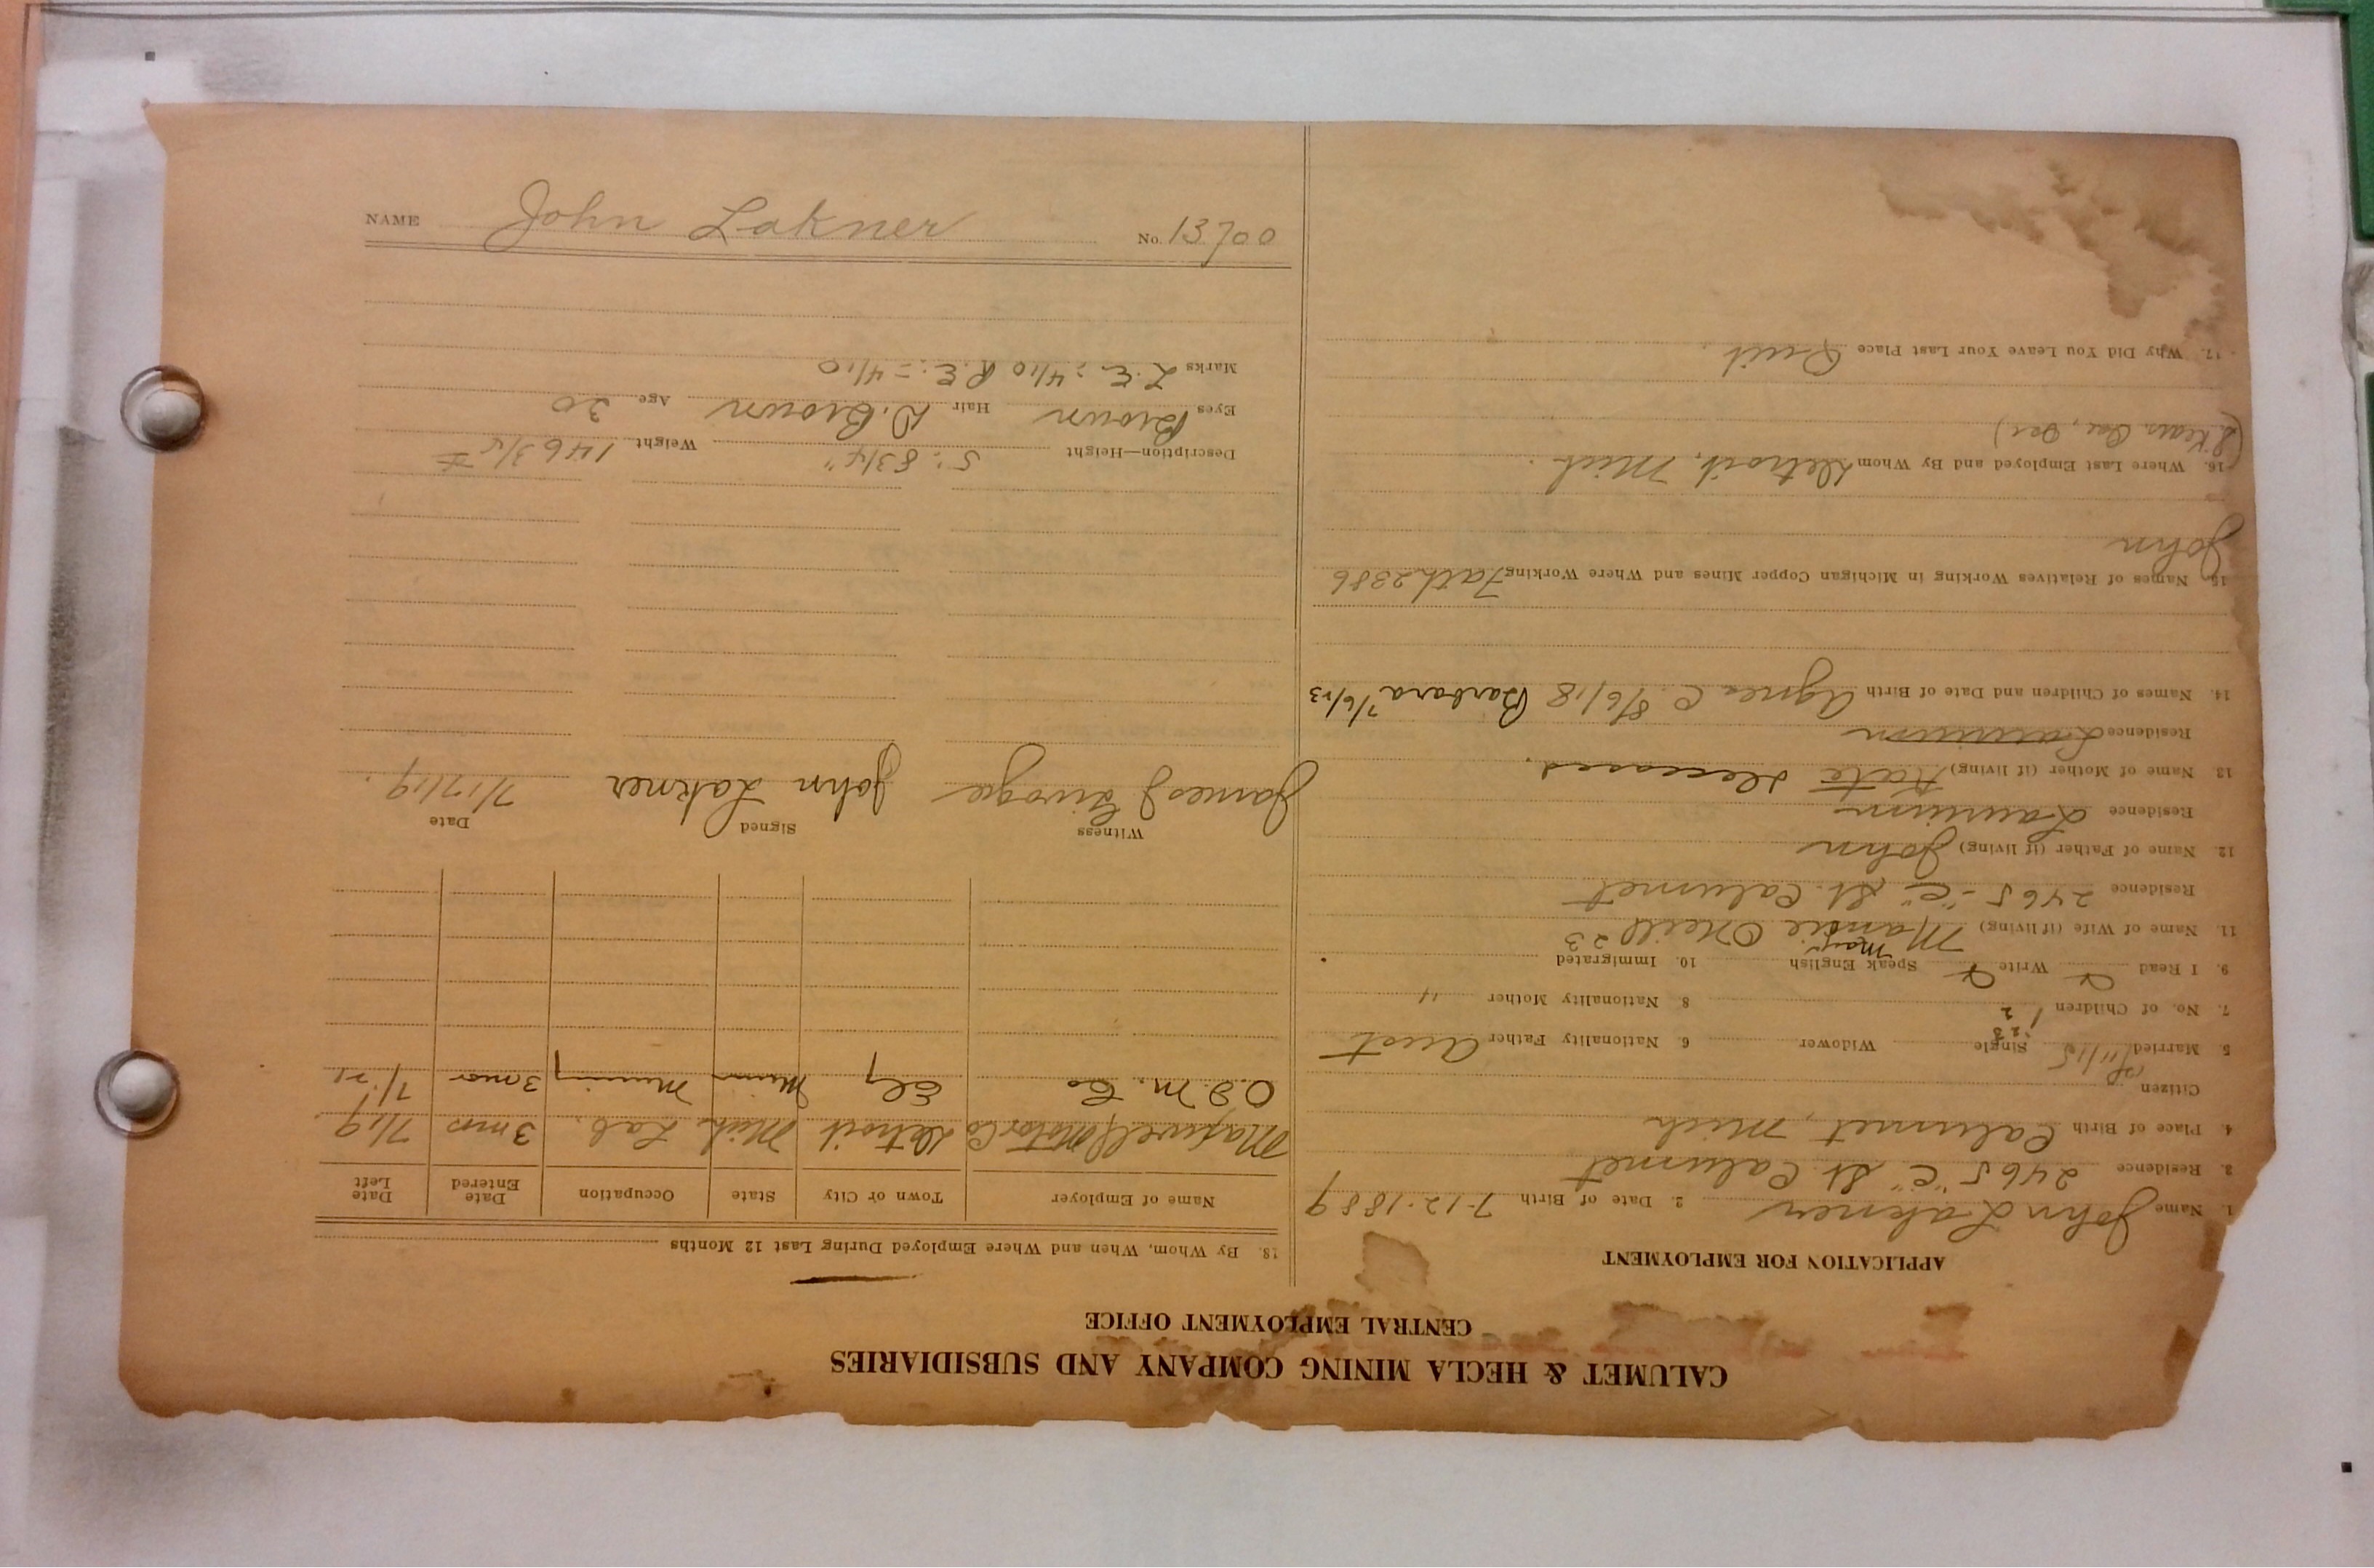 CALUMET & HECLA MINING COMPANY AND SUBSIDIARIES
CENTRAL EMPLOYMENT OFFICE
APPLICATION FOR EMPLOYMENT
1. Name John Lakner 2. Date of Birth 7-12-1889
3. Residence 2465 "C" St. Calumet
4. Place of Birth Calumet, Mich
Citizen
5. Married Single Widower 6. Nationality Father Aust
7. No. of Children 1 2 8. Nationality Mother "
9. I Read Write Speak English 10. Immigrated
11. Name of Wife (if living) Mamie O'Neill 23
Residence 2465 - "C" St. Calumet
12. Name of Father (if living) John
Residence Laurium
13. Name of Mother (if living) Kate deceased.
Residence Laurium
14. Names of Children and Date of Birth Agnes C. 8/6/18 Barbara 7/6/23
15. Names of Relatives Working in Michigan Copper Mines and Where Working Fath 2386
John
16. Where Last Employed and By Whom Detroit, Mich.
17. Why Did You Leave Your Last Place Quit.
18. By Whom, When and Where Employed During Last 12 Months
Name of Employer Town or City State Occupation Date Entered Date Left
Maxwell Motor Co Detroit Mich. Lab. 3 mos 7/19.
O.I.M. Co Ely Minn Mining 3 mos 7/1/21
Witness Signed Date
James J John Lakner 7/17/19.
Description—Height 5': 8 3/4" Weight 146 3/4 #
Eyes Brown Hair D. Brown Age 30
Marks L.E. = 4/10 R.E. = 4/10
NAME John Lakner No. 13700